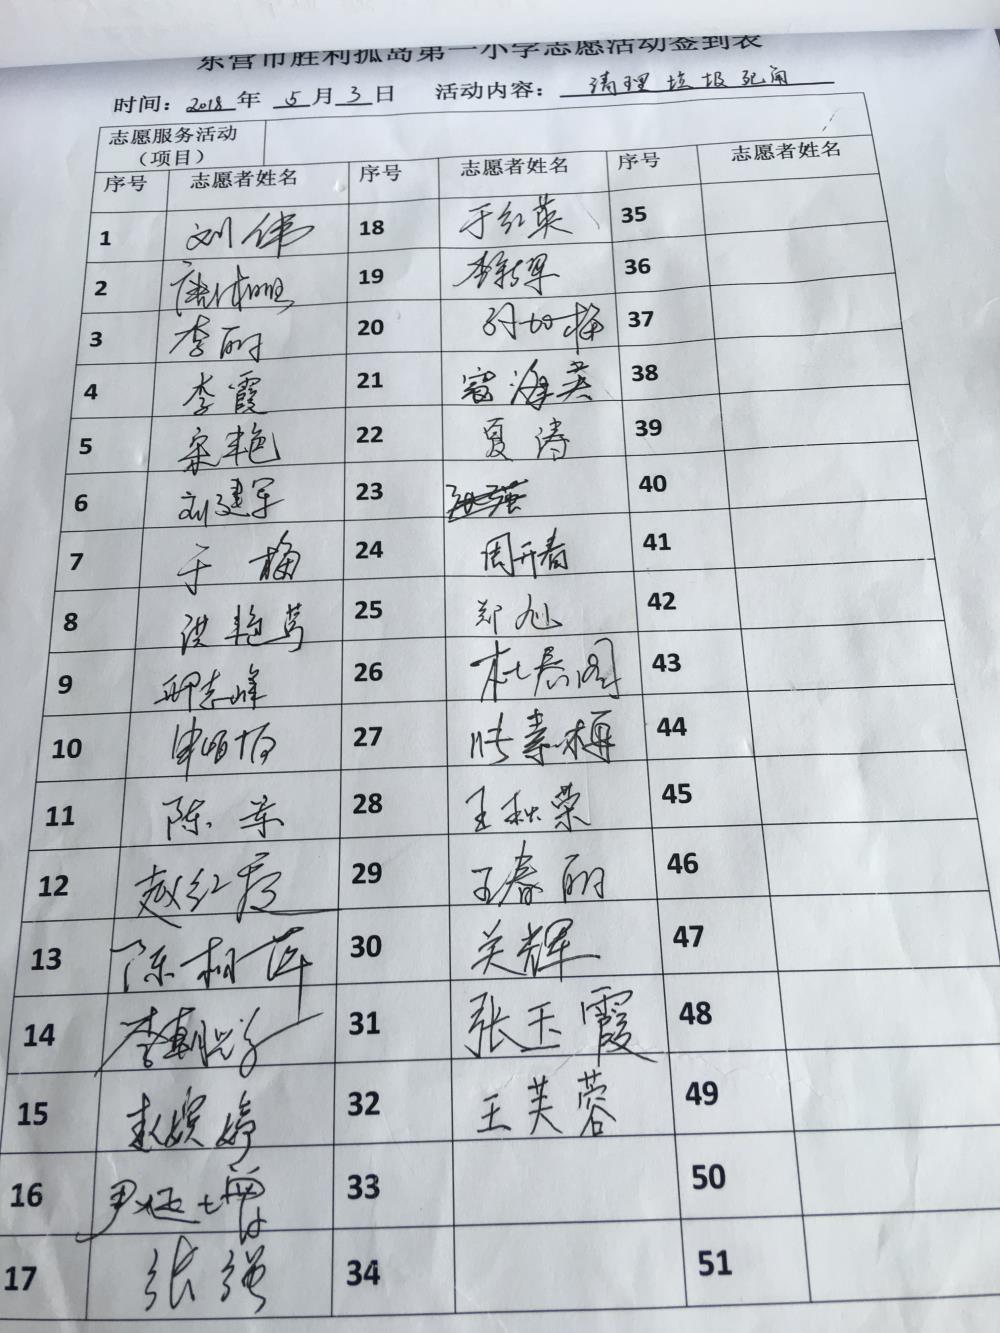 东营市胜利孤岛第一小学志愿活动签到表
时间：2018 年 5 月 3 日 活动内容：清理垃圾死角
志愿服务活动
（项目）
序号 志愿者姓名 序号 志愿者姓名 序号 志愿者姓名
1 刘伟 18 于红英 35
2 19 36
3 李丽 20 37
4 李霞 21 38
5 宋艳 22 夏涛 39
6 刘建军 23 40
7 于梅 24 周开春 41
8 洪艳莺 25 郑旭 42
9 邢志峰 26 43
10 27 张素梅 44
11 陈荣 28 王秋荣 45
12 赵红霞 29 王春丽 46
13 陈相萍 30 关辉 47
14 31 张玉霞 48
15 32 王芙蓉 49
16 33 50
17 张强 34 51